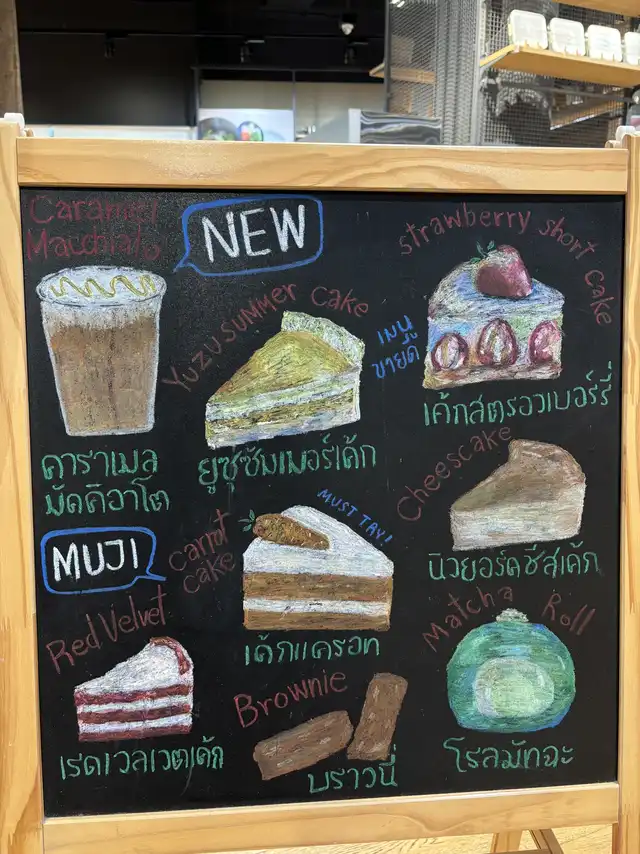 Caramel
Macchiato
NEW
คาราเมล
มัคคิอาโต
Yuzu summer cake
ยูซุซัมเมอร์เค้ก
strawberry short cake
เมนู
ขายดี
เค้กสตรอวเบอร์รี่
MUJI
carrot
cake
MUST TRY!
เค้กแครอท
Cheescake
นิวยอร์คชีสเค้ก
Red Velvet
เรดเวลเวตเค้ก
Brownie
บราวนี่
Matcha Roll
โรลมัทฉะ